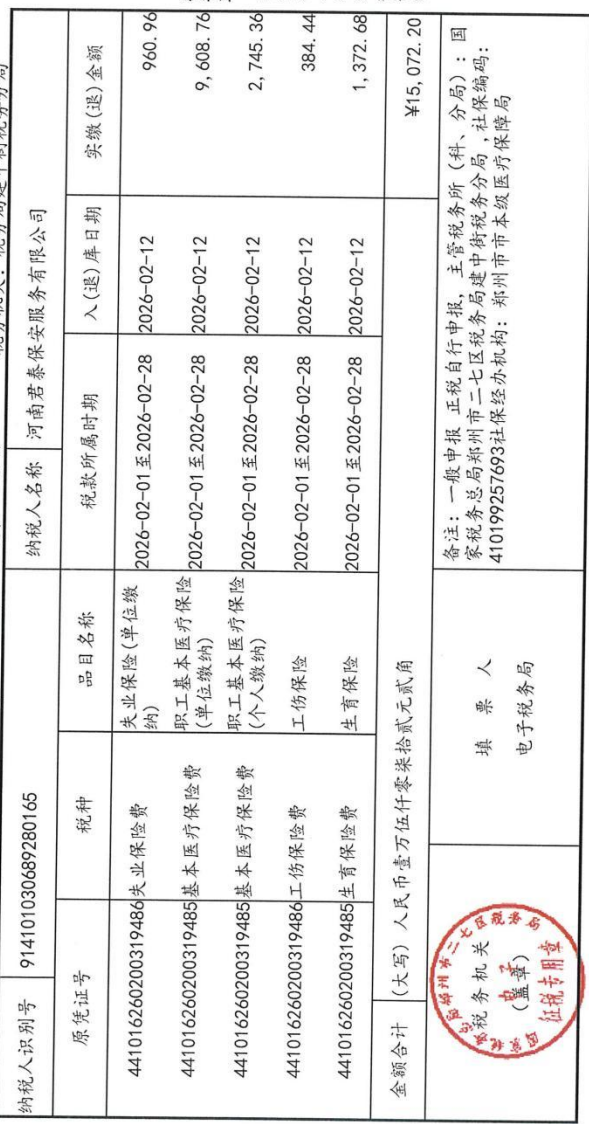 纳税人识别号 914101030689280165 纳税人名称 河南君泰保安服务有限公司
原凭证号 税种 品目名称 税款所属时期 入(退)库日期 实缴(退)金额
441016260200319486 失业保险费 失业保险(单位缴
纳) 2026-02-01至2026-02-28 2026-02-12 960.96
441016260200319485 基本医疗保险费 职工基本医疗保险
(单位缴纳) 2026-02-01至2026-02-28 2026-02-12 9,608.76
441016260200319485 基本医疗保险费 职工基本医疗保险
(个人缴纳) 2026-02-01至2026-02-28 2026-02-12 2,745.36
441016260200319486 工伤保险费 工伤保险 2026-02-01至2026-02-28 2026-02-12 384.44
441016260200319485 生育保险费 生育保险 2026-02-01至2026-02-28 2026-02-12 1,372.68
金额合计 (大写) 人民币壹万伍仟零柒拾贰元贰角 ¥15,072.20
税务机关
(盖章)
征税专用章
填票人
电子税务局
备注: 一般申报 正税自行申报, 主管税务所 (科、分局): 国
家税务总局郑州市二七区税务局建中街税务分局 ,社保编码:
410199257693社保经办机构: 郑州市市本级医疗保障局